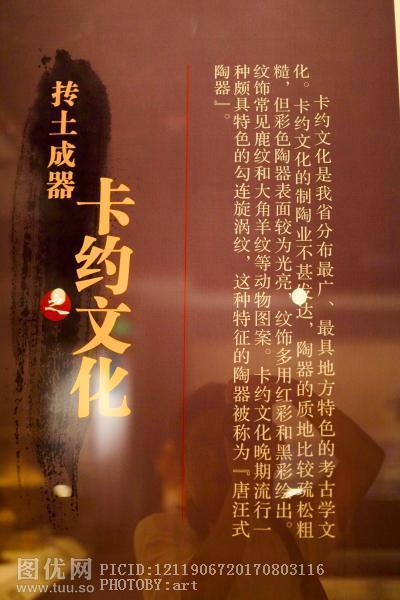 抟土成器
之
卡约文化
卡约文化是我省分布最广、最具地方特色的考古学文
化。卡约文化的制陶业不甚发达，陶器的质地比较疏松粗
糙，但彩色陶器表面较为光亮，纹饰多用红彩和黑彩绘出。
纹饰常见鹿纹和大角羊纹等动物图案。卡约文化晚期流行一
种颇具特色的勾连旋涡纹，这种特征的陶器被称为『唐汪式
陶器』。
图优网
www.tuu.so
PICID:1211906720170803116
PHOTOBY:art